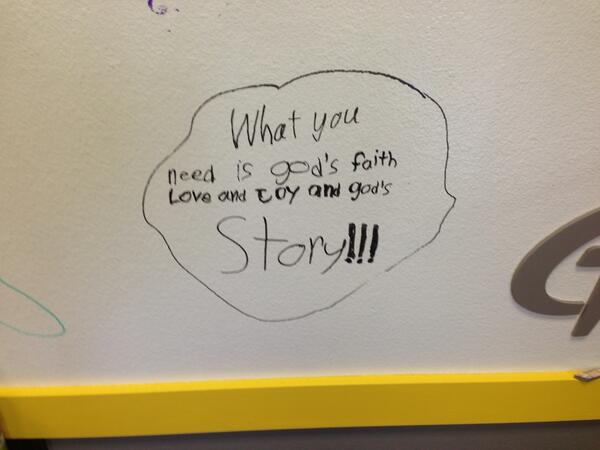 What you
need is god's faith
Love and toy and god's
Story!!!